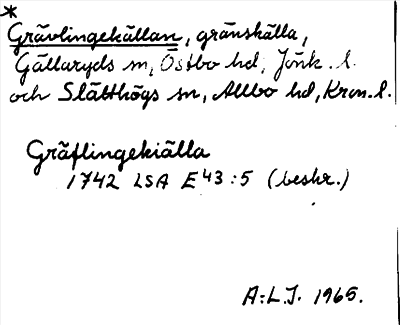 *
Grävlingekällan, gränskälla,
Gällaryds sn, Östbo hd, Jönk. l.
och Slätthögs sn, Allbo hd, Kron. l.
Gräflingekiälla
1742 LSA E43:5 (beskr.)
A:L.J. 1965.